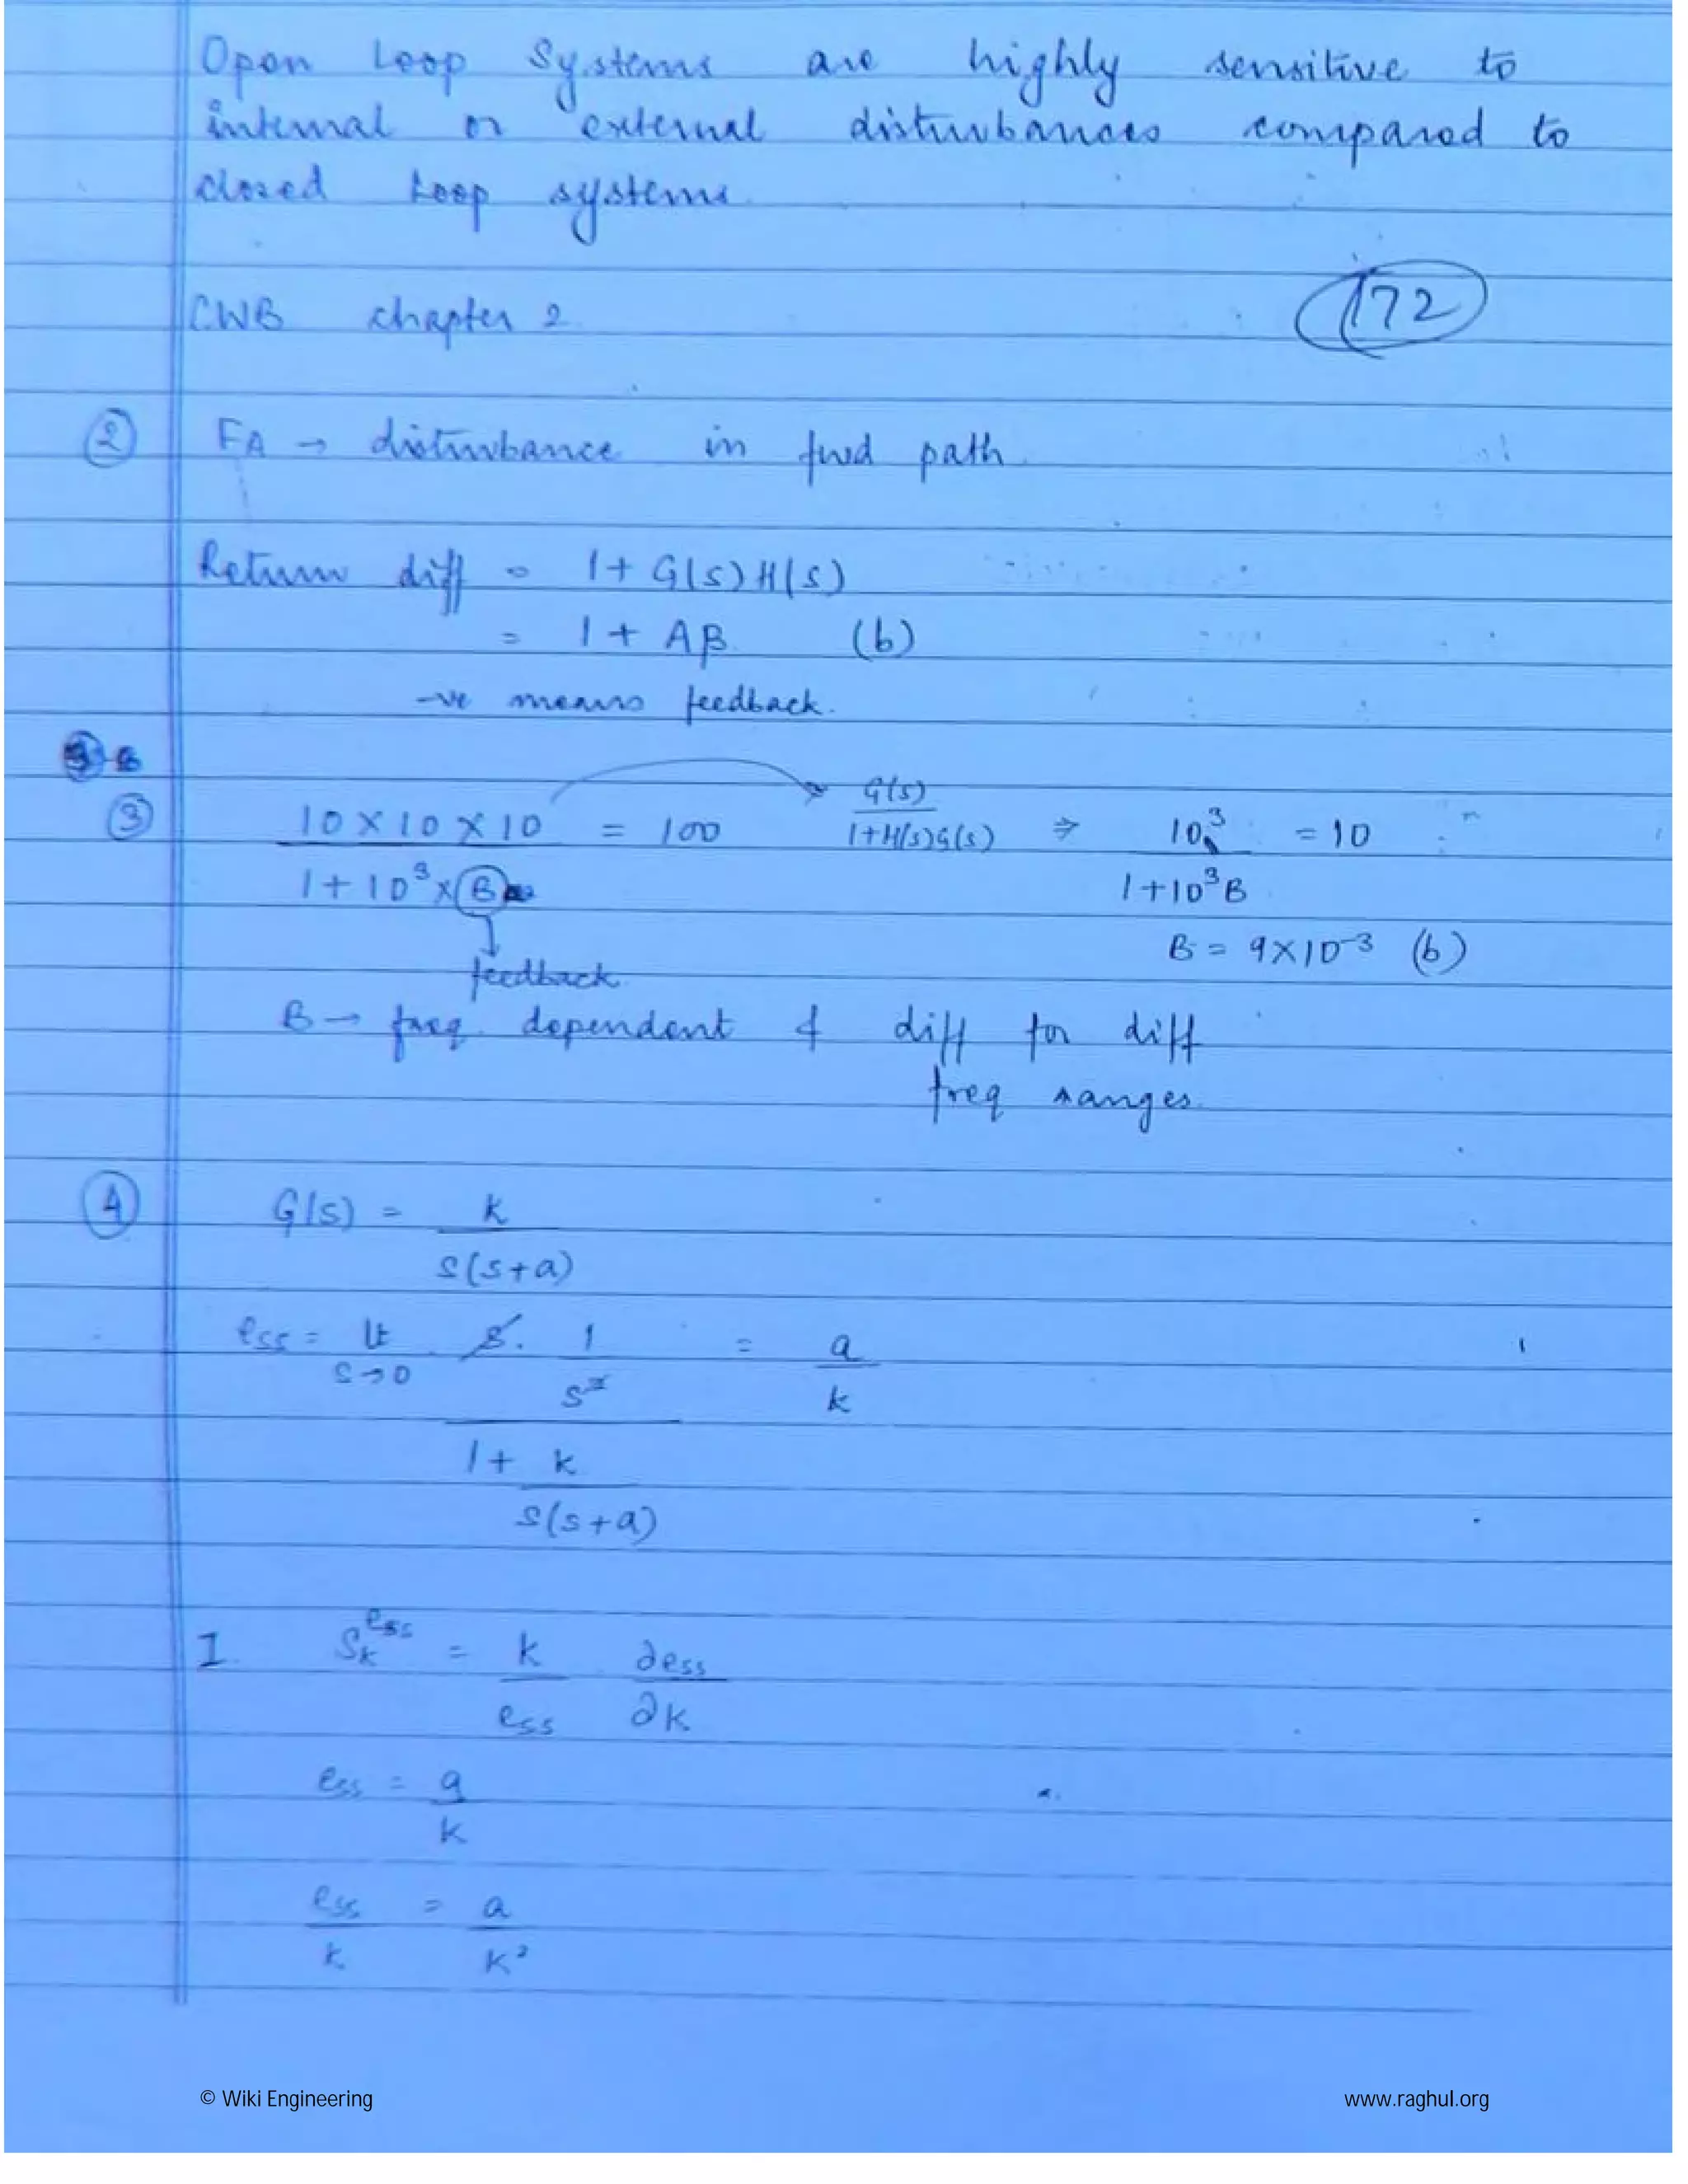 Open Loop Systems are highly sensitive to
internal or external disturbances compared to
closed loop systems.
CWB chapter 2
172
② FA → disturbance in fwd path
Return diff = 1 + G(s)H(s)
= 1 + Aβ (b)
-ve means feedback.
③ 10 × 10 × 10 / 1 + 10³ × B = 100 G(s) / 1+H(s)G(s) ⇒ 10³ / 1+10³B = 10
feedback B = 9×10⁻³ (b)
B → freq. dependent & diff for diff
freq ranges.
④ G(s) = k / s(s+a)
ess = lt s→0 s. 1/s² / 1 + k/s(s+a) = a/k
I. S_k^ess = k/ess ∂ess/∂k
ess = a/k
ess/k = a/k²
© Wiki Engineering www.raghul.org